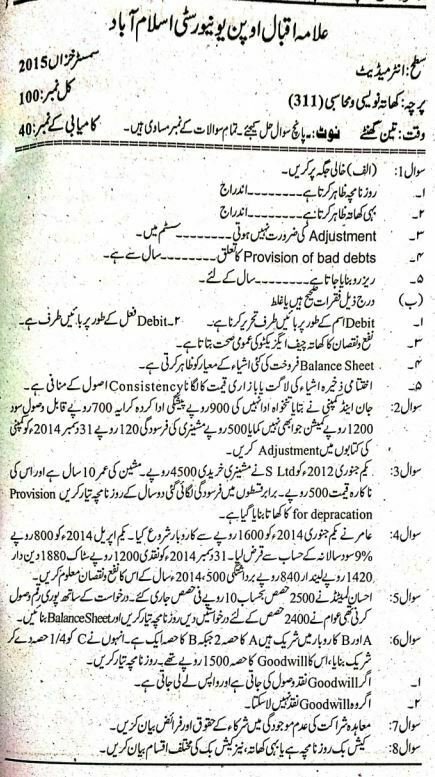 علامہ اقبال اوپن یونیورسٹی اسلام آباد
سطح: انٹرمیڈیٹ سمسٹر خزاں 2015
پرچہ: کھاتہ نویسی و محاسبی (311) کل نمبر: 100
وقت: تین گھنٹے نوٹ:۔ پانچ سوال حل کیجئے۔ تمام سوالات کے نمبر مساوی ہیں۔ کامیابی کے نمبر: 40
سوال1: (الف) خالی جگہ پر کریں۔
۱۔ روزنامچہ ظاہر کرتا ہے--------اندراج
۲۔ بہی کھاتہ ظاہر کرتا ہے--------اندراج
۳۔ Adjustment کی ضرورت نہیں ہوتی--------سسٹم میں۔
۴۔ Provision of bad debts کا تعلق--------سال سے ہے۔
۵۔ ریزرو بنایا جاتا ہے--------سال کے لئے۔
(ب) درج ذیل فقرات صحیح ہیں یا غلط
۱۔ Debit اسم کے طور پر بائیں طرف تحریر کرنا ہے۔ ۲۔ Debit فعل کے طور پر بائیں طرف ہے۔
۳۔ نفع و نقصان کا کھاتہ چیف ایگزیکٹو کی عمومی صحت بتاتا ہے۔
۴۔ Balance Sheet فروخت کی گئی اشیاء کے معیار کو ظاہر کرتی ہے۔
۵۔ اختتامی ذخیرہ اشیاء کی لاگت یا بازاری قیمت کا لگانا Consistency اصول کے منافی ہے۔
سوال2: جان اینڈ کمپنی نے بتایا تنخواہ ادا نہیں کی 900 روپے پیشگی ادا کردہ کرایہ 700 روپے قابل وصول سود
1200 روپے کمیشن جو ابھی نہیں کمایا 500 روپے مشینری کی فرسودگی 120 روپے 31 دسمبر 2014ء کو کمپنی
کی کتابوں میں Adjustment کریں۔
سوال3: یکم جنوری 2012ء کو S Ltd نے مشینری خریدی 4500 روپے۔ مشین کی عمر 10 سال ہے اور اس کی
ناکارہ قیمت 500 روپے۔ برابر قسطوں میں فرسودگی لگائی گئی دو سال کے روزنامچہ تیار کریں Provision
for depracation کا کھاتا بنایا گیا ہے۔
سوال4: عامر نے یکم جنوری 2014ء کو 1600 روپے سے کاروبار شروع کیا۔ یکم اپریل 2014ء کو 800 روپے
9% سود سالانہ کے حساب سے قرض لیا۔ 31 دسمبر 2014ء کو نقدی 1200 روپے سٹاک 1880 دین دار
1420 روپے لیندار 840 روپے برداشتگی 500، 2014ء کے سال کے اس کا نفع نقصان معلوم کریں۔
سوال5: احسان لمیٹڈ نے 2500 حصص بحساب 10 روپے فی حصص جاری کئے۔ درخواست کے ساتھ پوری رقم وصول
کرنی تھی عوام نے 2400 حصص کے لئے درخواستیں دیں روزنامچہ تیار کریں اور Balance Sheet بنائیں۔
سوال6: A اور B کاروبار میں شریک ہیں A کا حصہ 2 جبکہ B کا حصہ ایک ہے۔ انہوں نے C کو 1/4 حصہ دے کر
شریک بنایا، اس کا Goodwill کا حصہ 1500 روپے تھے۔ روزنامچہ تیار کریں۔
۱۔ اگر Goodwill نقد وصول کی جاتی ہے اور واپس لے لی جاتی ہے۔
۲۔ اگر وہ Goodwill نقد نہیں لا سکتا۔
سوال7: معاہدہ شراکت کی عدم موجودگی میں شرکاء کے حقوق اور فرائض بیان کریں۔
سوال8: کیش بک روزنامچہ ہے یا بہی کھاتہ، نیز کیش بک کی مختلف اقسام بیان کریں۔